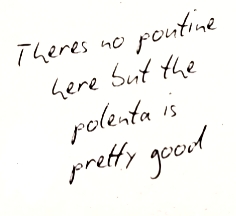 Theres no poutine
here but the
polenta is
pretty good